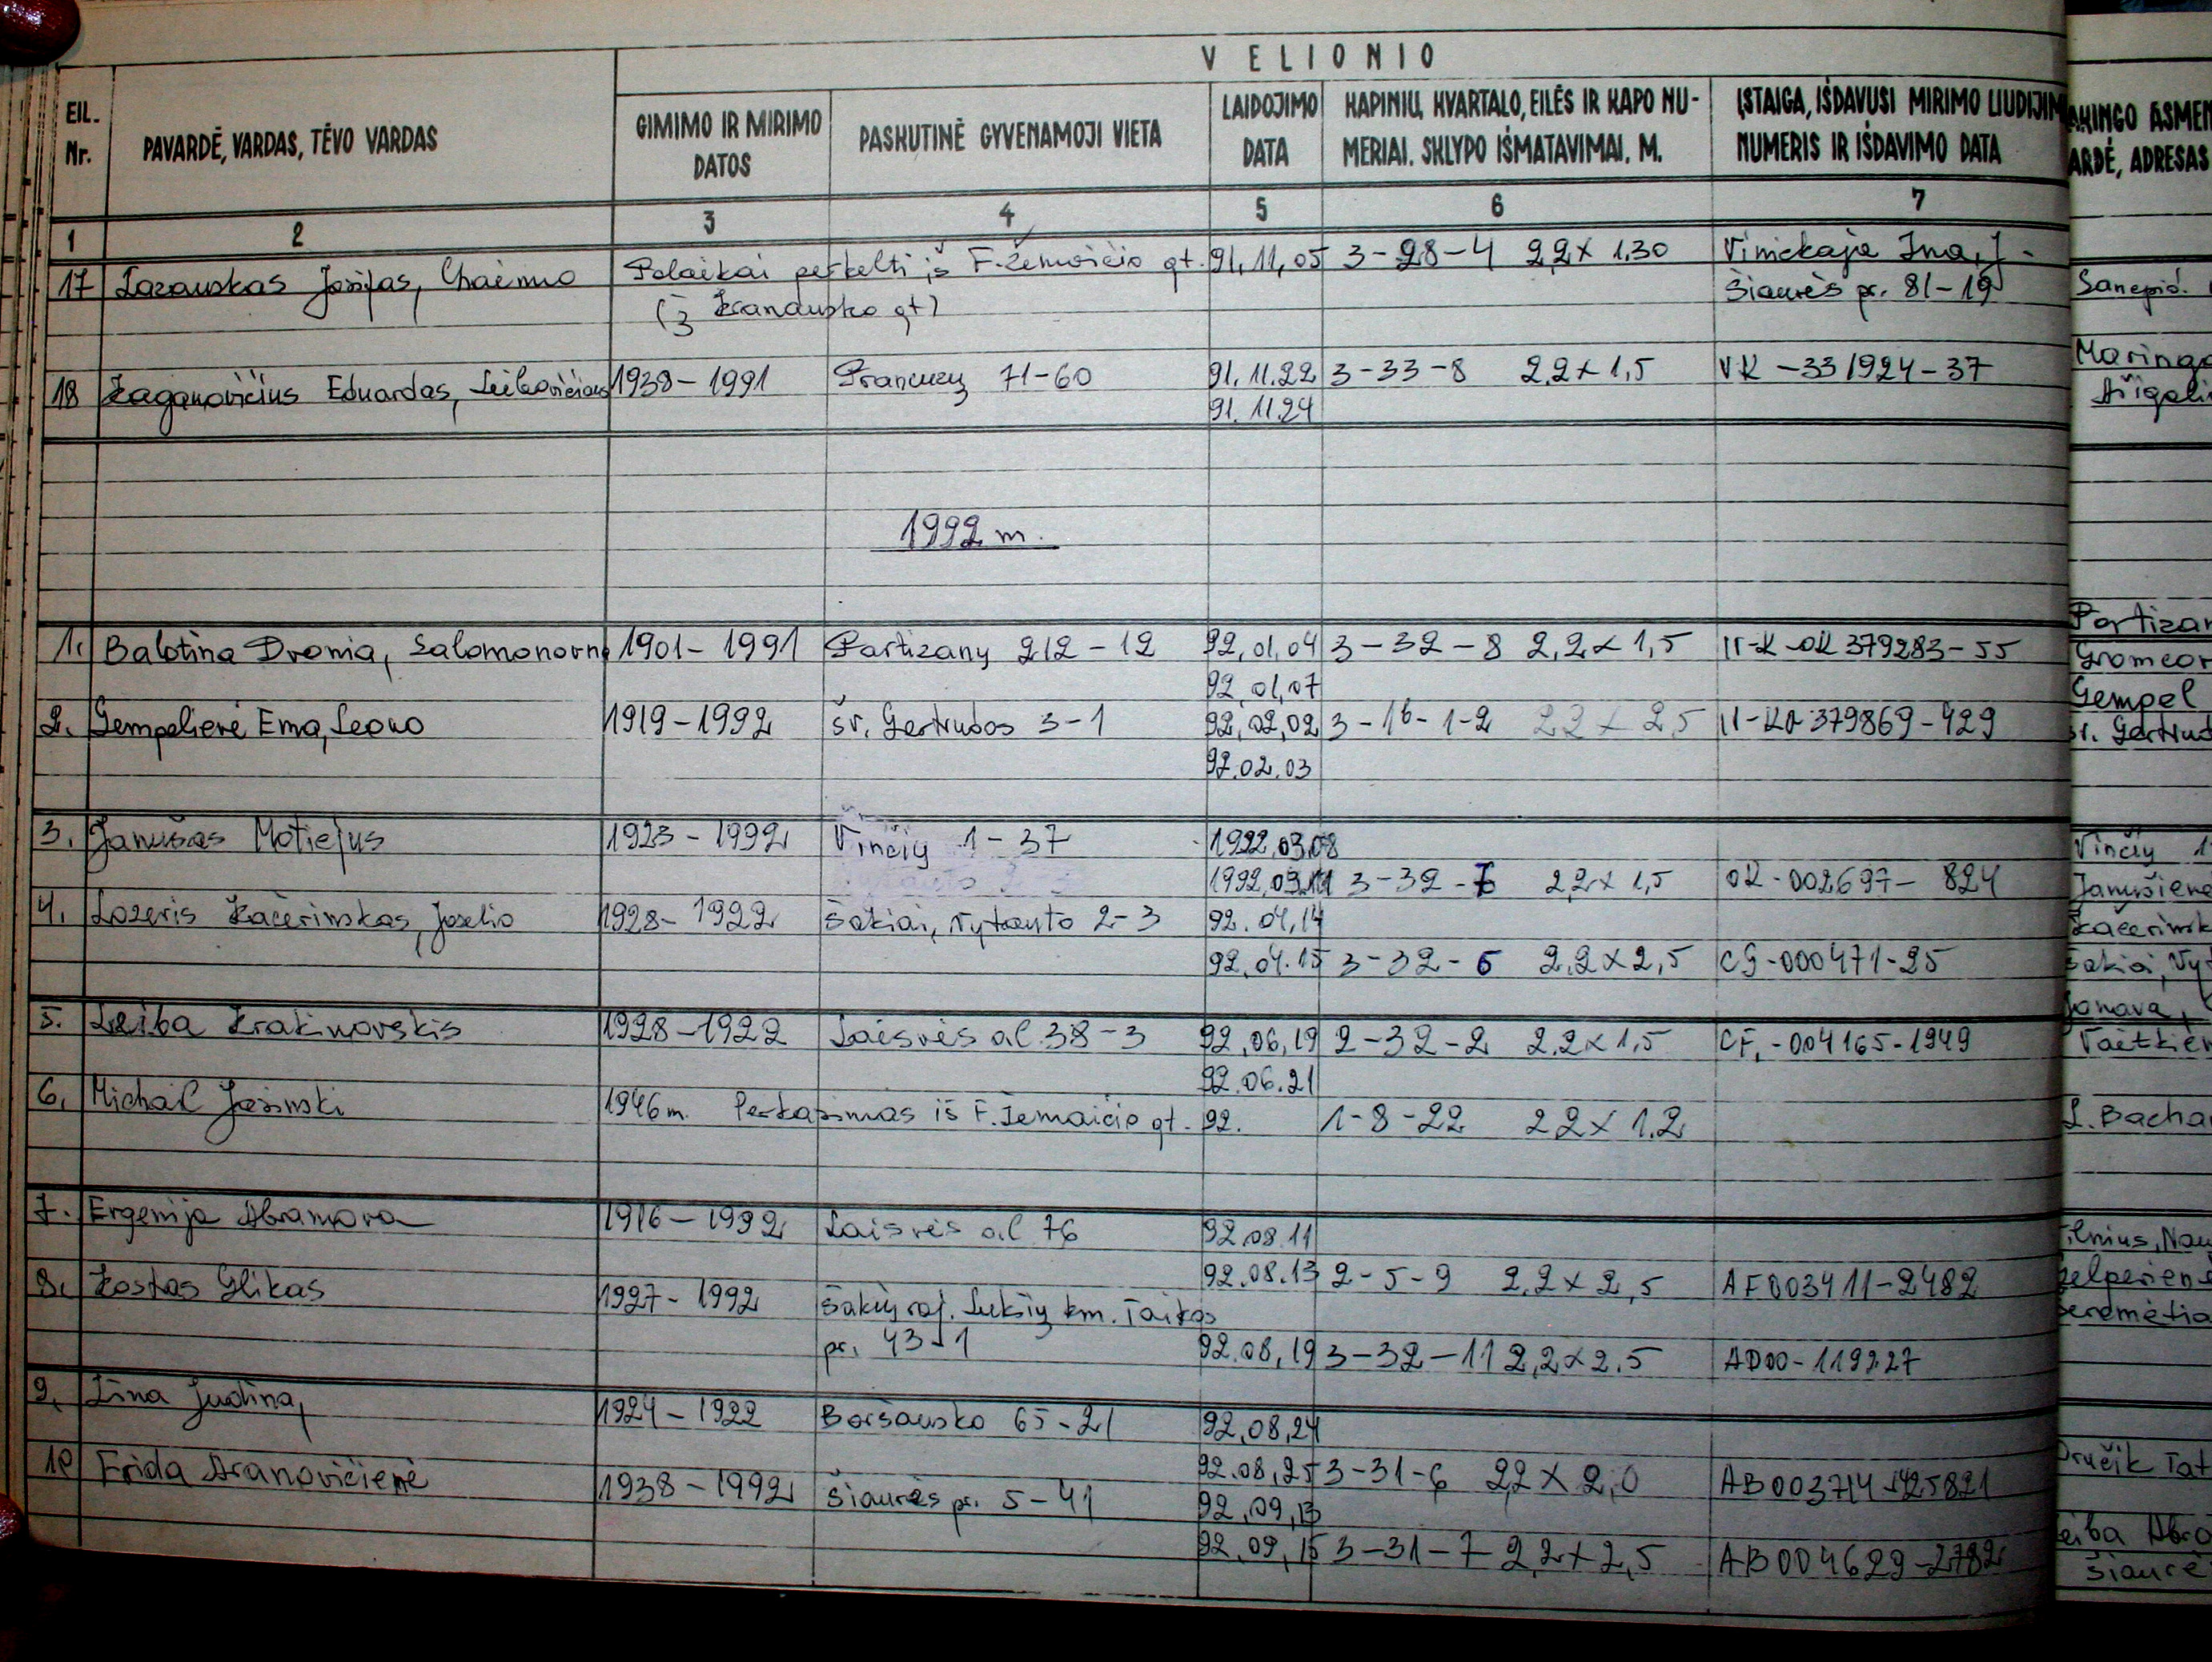 VELIONIO
EIL. Nr. PAVARDĖ, VARDAS, TĖVO VARDAS GIMIMO IR MIRIMO DATOS PASKUTINĖ GYVENAMOJI VIETA LAIDOJIMO DATA KAPINIŲ, KVARTALO, EILĖS IR KAPO NUMERIAI. SKLYPO IŠMATAVIMAI, M. ĮSTAIGA, IŠDAVUSI MIRIMO LIUDIJIM NUMERIS IR IŠDAVIMO DATA
1 2 3 4 5 6 7
17 Lazauskas Josifas, Chaimo Palaikai perkelti iš F. Žemaičio gt. 91.11,05 3-28-4 2,2x1,30 Vinickaja Ina, J-
(į Kranausko gt) Šiaurės pr. 81-19 Sanepid.
18 Kaganovičius Eduardas, Leibovičiaus 1938-1991 Prancūzų 71-60 91.11.22 3-33-8 2,2x1,5 VK-331924-37
91.11.24
1992 m.
1. Balotina Dronia, Salomonovna 1901-1991 Partizanų 212-12 92,01,04 3-32-8 2,2x1,5 II-K-OK 379283-55
92,01,07 Gempel
2. Gempelienė Ema, Leono 1919-1992 Šv. Gertrudos 3-1 92,02,02 3-16-1-2 2,2x2,5 II-KO-379869-429
92.02.03
3. Janušas Motiejus 1923-1992 Vinčių 1-37 1992,03,08 Vinčių 1
1992,03,11 3-32-7 2,2x1,5 OK-002697-824 Janušienė
4. Lozeris Kačerinskas, Joselio 1928-1922 Šakiai, Vytauto 2-3 92.04,14
92.04.15 3-32-6 2,2x2,5 CG-000471-25
Jonava,
5. Leiba Krakinovskis 1928-1922 Laisvės al. 38-3 92,06,19 2-32-2 2,2x1,5 CF.-004165-1949
92.06.21
6. Michail Jasinski 1946m. Perkasimas iš F. Žemaičio gt. 92. 1-8-22 2,2x1,2 L. Bacha
7. Evgenija Abramova 1916-1992 Laisvės al 76 92.08.11
92.08.13 2-5-9 2,2x2,5 AF003411-2482
8. Kostas Glikas 1927-1992 Šakių raj. Lukšių km. Taikos
pr. 43-1 92.08,19 3-32-11 2,2x2.5 AD00-119227
9. Zina Judina, 1924-1922 Baršausko 65-21 92,08,24
92.08,25 3-31-6 2,2x2,0 AB003714
10 Frida Aranovičienė 1938-1992 Šiaurės pr. 5-41 92,09,13
92,09,15 3-31-7 2,2x2,5 AB004629-2782